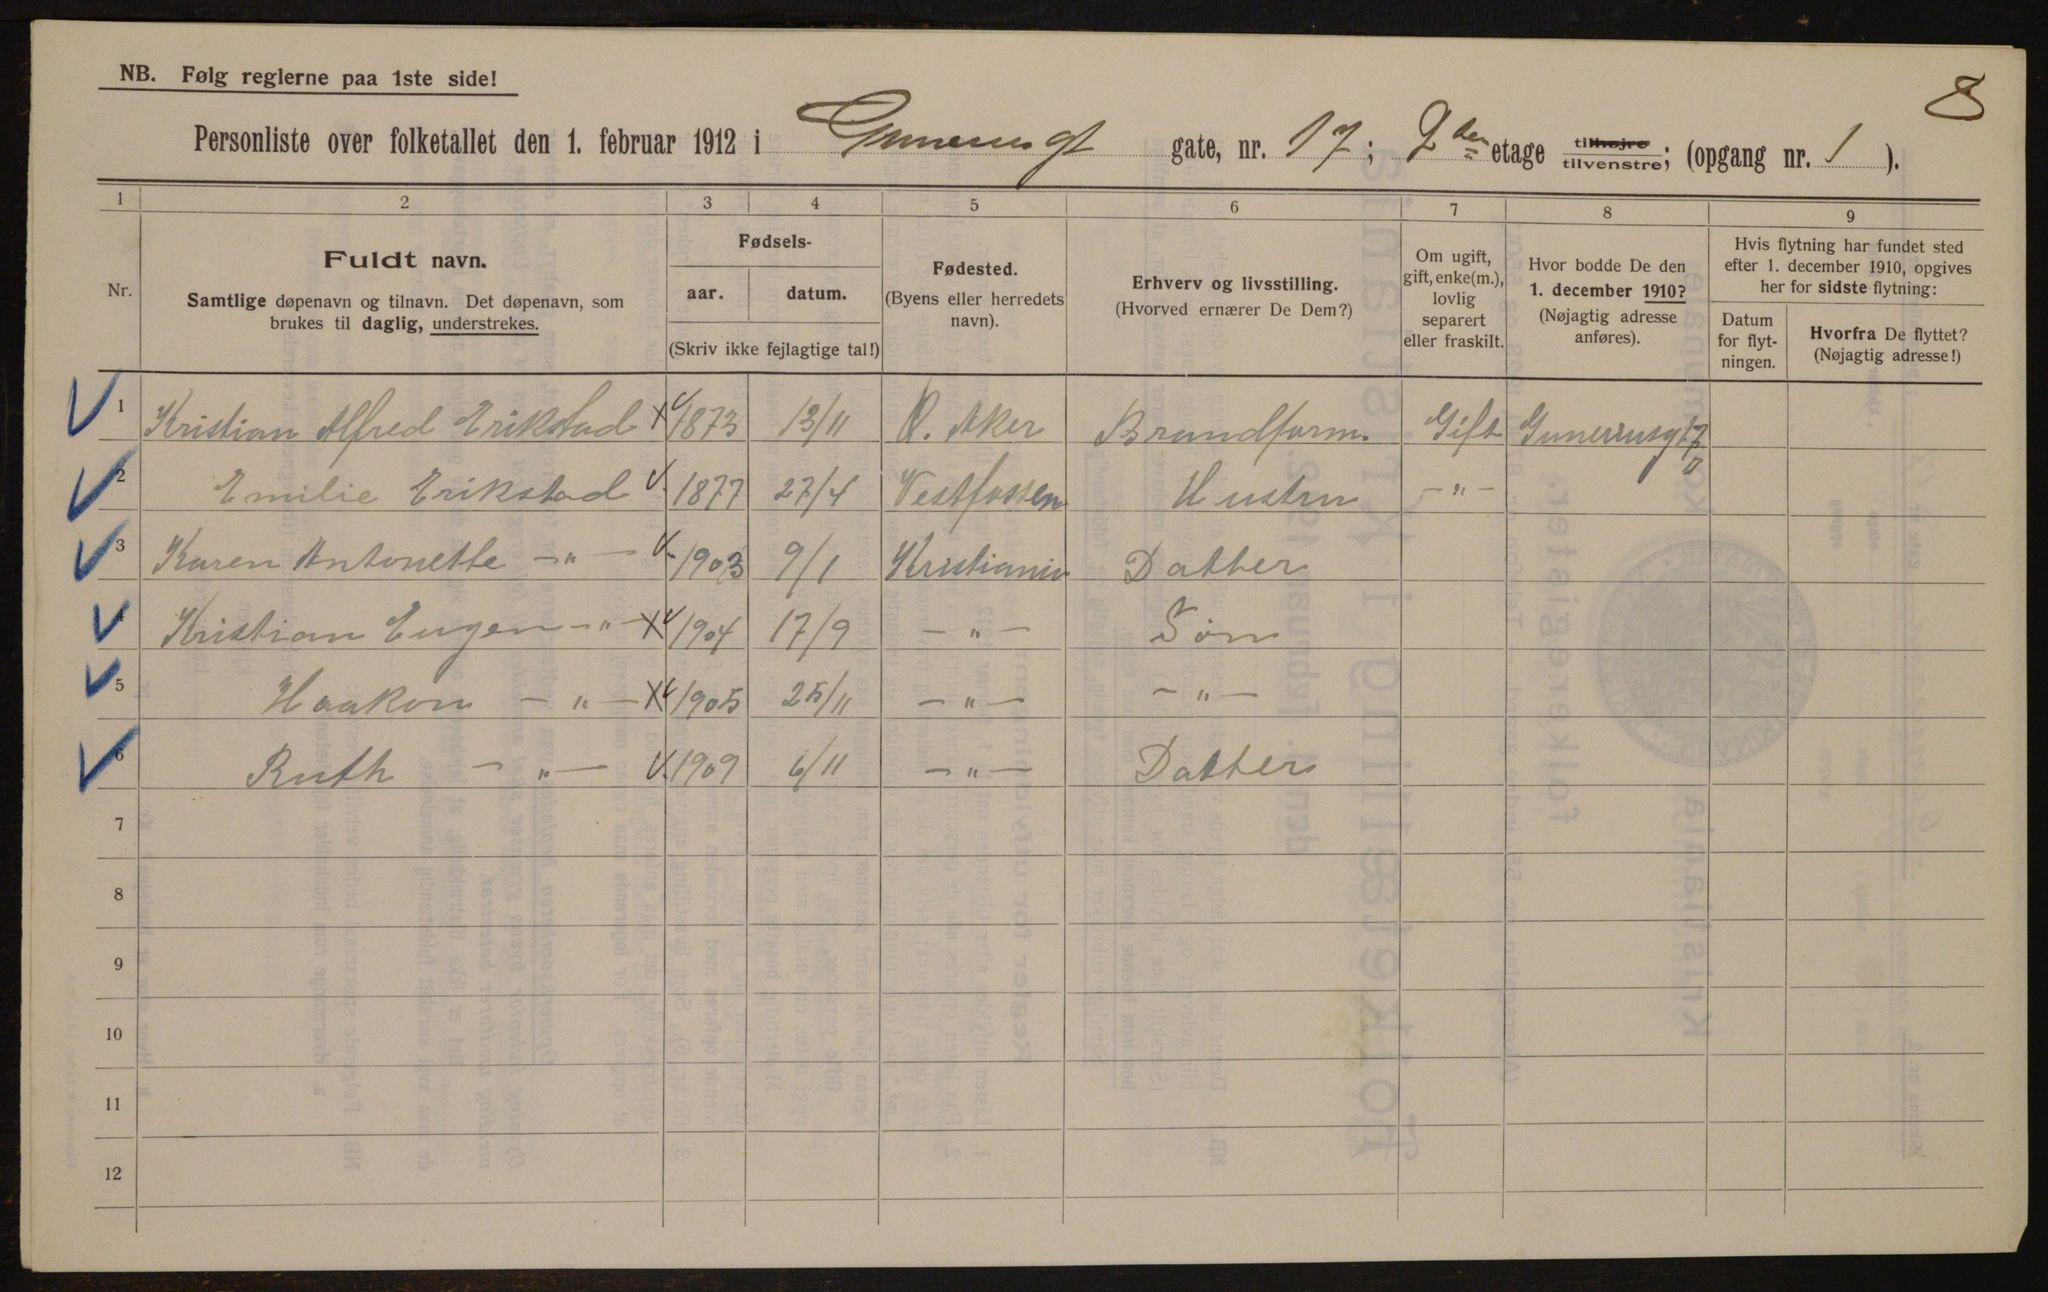 NB. Følg reglerne paa 1ste side!
8
Personliste over folketallet den 1. februar 1912 i Gunerusgt gate, nr. 17; 2den etage tilhøjre tilvenstre; (opgang nr. 1 ).
1 2 3 4 5 6 7 8 9
Nr.
Fuldt navn.
Samtlige døpenavn og tilnavn. Det døpenavn, som
brukes til daglig, understrekes.
Fødsels-
aar. datum.
(Skriv ikke fejlagtige tal!)
Fødested.
(Byens eller herredets
navn).
Erhverv og livsstilling.
(Hvorved ernærer De Dem?)
Om ugift,
gift, enke(m.),
lovlig
separert
eller fraskilt.
Hvor bodde De den
1. december 1910?
(Nøjagtig adresse
anføres).
Hvis flytning har fundet sted
efter 1. december 1910, opgives
her for sidste flytning:
Datum
for flyt-
ningen.
Hvorfra De flyttet?
(Nøjagtig adresse!)
1 Kristian Alfred Erikstad 1873 13/11 Ø. Aker Brandform. Gift Gunerrusgt 17
2 Emilie Erikstad 1877 27/4 Vestfossen Hustru -"- "
3 Karen Antonette -"- 1903 9/1 Kristiania Datter
4 Kristian Eugen -"- 1904 17/9 -"- Søn
5 Haakon -"- 1905 25/11 -"- -"-
6 Ruth -"- 1909 6/11 -"- Datter
7
8
9
10
11
12